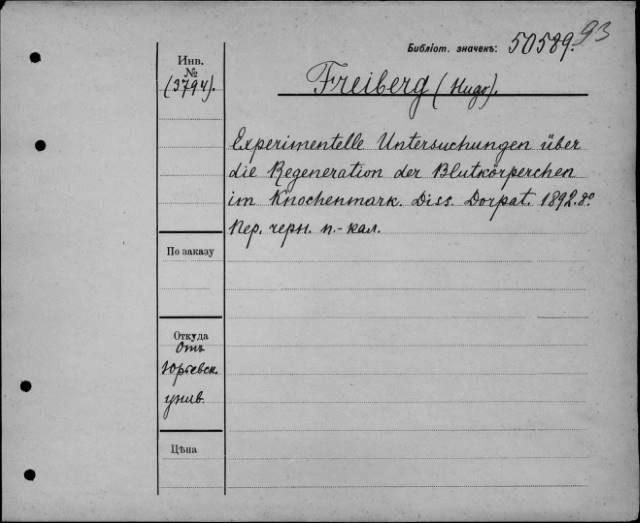 93
Библіот. значекъ: 50589.
Инв.
№
(3794).
Freiberg (Hugo).
Experimentelle Untersuchungen über
die Regeneration der Blutkörperchen
im Knochenmark. Diss. Dorpat. 1892. 8º
Пер. черн. п.-кал.
По заказу
Откуда
Отъ
Юрьевск.
унив.
Цѣна